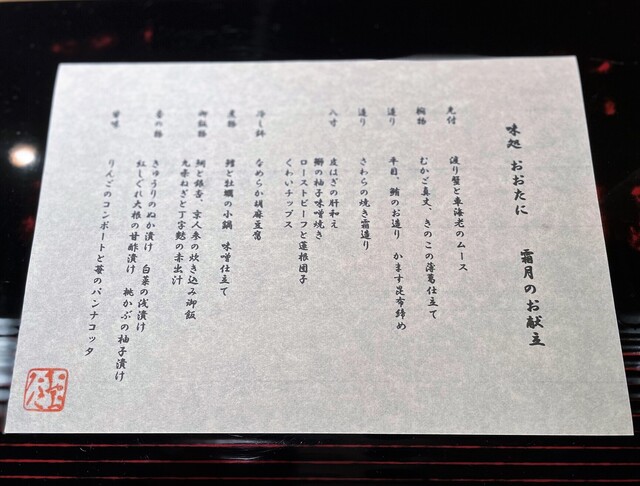 味処 おおたに 霜月のお献立
先付 渡り蟹と車海老のムース
椀物 むかご真丈、きのこの薄葛仕立て
造り 平目、鮪のお造り かます昆布締め
造り さわらの焼き霜造り
八寸 皮はぎの肝和え
鰤の柚子味噌焼き
ローストビーフと蓮根団子
くわいチップス
冷し鉢 なめらか胡麻豆腐
煮物 鱈と牡蠣の小鍋 味噌仕立て
御飯物 鯛と銀杏、京人参の炊き込み御飯
九条ねぎと丁字麩の赤出汁
香の物 きゅうりのぬか漬け 白菜の浅漬け
紅しぐれ大根の甘酢漬け 桃かぶの柚子漬け
甘味 りんごのコンポートと苺のパンナコッタ